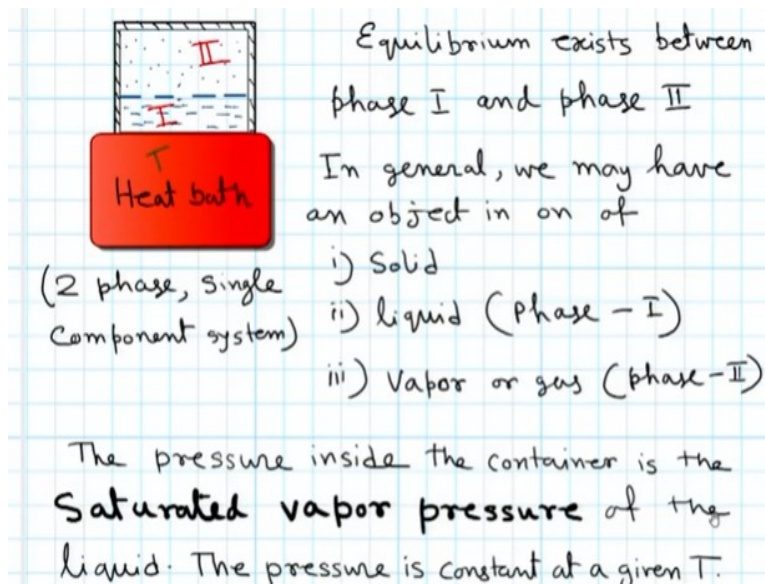 II
I
T
Heat bath
(2 phase, single
component system)
Equilibrium exists between
phase I and phase II
In general, we may have
an object in on of
i) Solid
ii) liquid (phase - I)
iii) Vapor or gas (phase-II)
The pressure inside the container is the
Saturated vapor pressure of the
liquid. The pressure is constant at a given T.